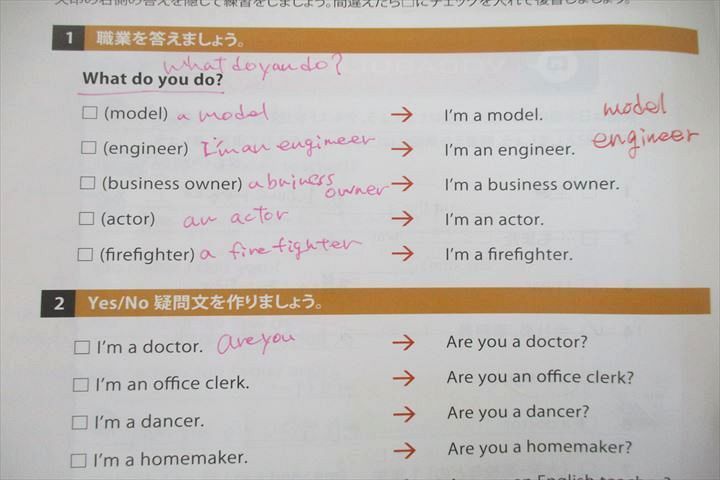 矢印の右側の答えを隠して練習をしましょう。間違えたら□にチェックを入れて復習しましょう。
1 職業を答えましょう。
what do you do?
What do you do?
□ (model) a model → I'm a model. model
□ (engineer) I'm an engineer → I'm an engineer. engineer
□ (business owner) a buiness owner → I'm a business owner.
□ (actor) an actor → I'm an actor.
□ (firefighter) a firefighter → I'm a firefighter.
2 Yes/No 疑問文を作りましょう。
□ I'm a doctor. are you → Are you a doctor?
□ I'm an office clerk. → Are you an office clerk?
□ I'm a dancer. → Are you a dancer?
□ I'm a homemaker. → Are you a homemaker?